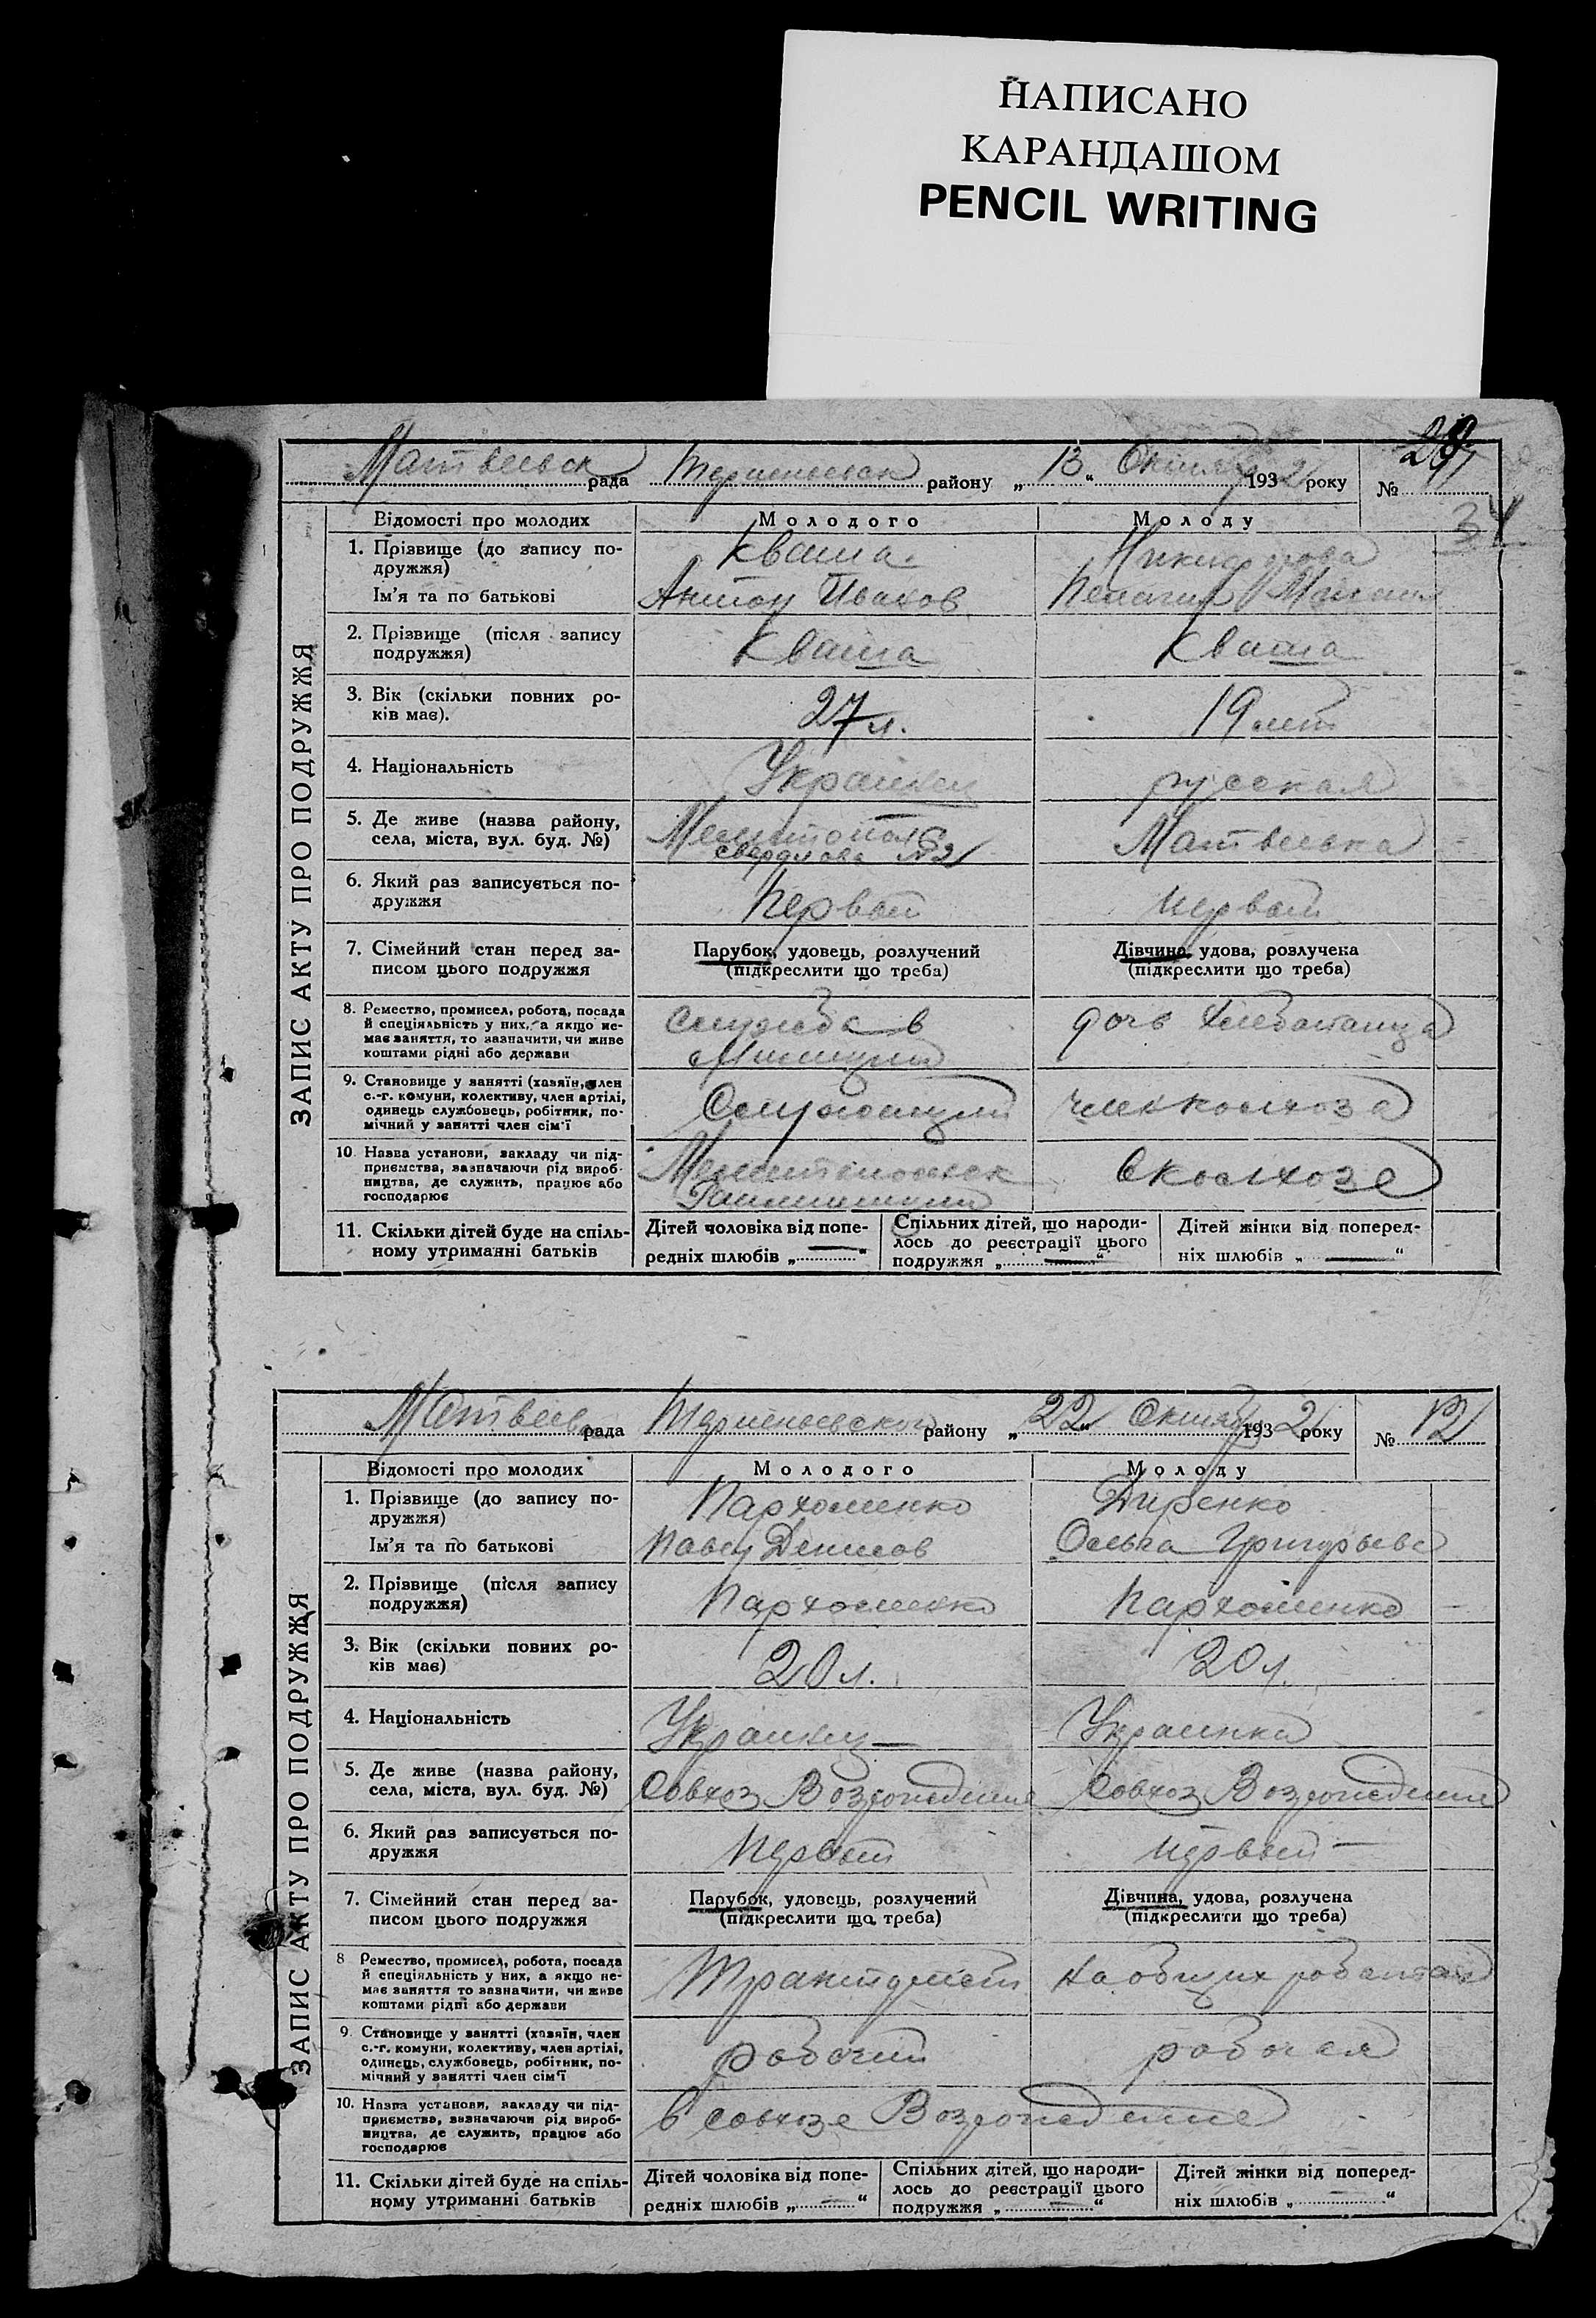 НАПИСАНО
КАРАНДАШОМ
PENCIL WRITING
28
Матвеевск рада Терпеньевск району „13“ Октяб 1932 року №
34
ЗАПИС АКТУ ПРО ПОДРУЖЖЯ
Відомості про молодих Молодого Молоду
1. Прізвище (до запису по-
дружжя) Кваша Никифорова
Ім'я та по батькові Антон Иванов Пелагия
2. Прізвище (після запису
подружжя) Кваша Кваша
3. Вік (скільки повних ро-
ків має). 27 л. 19 лет
4. Національність Украинец русская
5. Де живе (назва району,
села, міста, вул. буд. №) Мелитополь Матвеевка
Свердлова №2
6. Який раз записується по-
дружжя Первый первый
7. Сімейний стан перед за-
писом цього подружжя
Парубок, удовець, розлучений
(підкреслити що треба)
Дівчина, удова, розлучена
(підкреслити що треба)
8. Ремество, промисел, робота, посада
й спеціяльність у них, а якщо не-
має заняття, то зазначити, чи живе
коштами рідні або держави
Служба в
Милиции
дочь
9. Становище у занятті (хазяїн, член
с.-г. комуни, колективу, член артілі,
одинець службовець, робітник, по-
мічний у занятті член сім'ї
Служащий член колхоза
10 Назва установи, закладу чи під-
приємства, зазначаючи рід вироб-
ництва, де служить, працює або
господарює
Мелитопольск
Раймилиции
в колхозе
11. Скільки дітей буде на спіль-
ному утриманні батьків
Дітей чоловіка від попе-
редніх шлюбів „—“
Спільних дітей, що народи-
лось до реєстрації цього
подружжя „—“
Дітей жінки від поперед-
ніх шлюбів „—“
Матвеев рада Терпеньевского району „22“ Октяб 1932 року № 12
ЗАПИС АКТУ ПРО ПОДРУЖЖЯ
Відомості про молодих Молодого Молоду
1. Прізвище (до запису по-
дружжя) Пархоменко Диренко
Ім'я та по батькові Павел Денисов Ольга Григорьева
2. Прізвище (після запису
подружжя) Пархоменко Пархоменко
3. Вік (скільки повних ро-
ків має) 20 л. 20 л.
4. Національність Украинец — Украинка
5. Де живе (назва району,
села, міста, вул. буд. №) Совхоз Возрождение Совхоз Возрождение
6. Який раз записується по-
дружжя Первый первый —
7. Сімейний стан перед за-
писом цього подружжя
Парубок, удовець, розлучений
(підкреслити що треба)
Дівчина, удова, розлучена
(підкреслити що треба)
8 Ремество, промисел, робота, посада
й спеціяльність у них, а якщо не-
має заняття то зазначити, чи живе
коштами рідні або держави
Тракторист на общих работах
9. Становище у занятті (хазяїн, член
с.-г. комуни, колективу, член артілі,
одинець, службовець, робітник, по-
мічний у занятті член сім'ї
рабочий рабочая
10. Назва установи, закладу чи під-
приємства, зазначаючи рід вироб-
ництва, де служить, працює або
господарює
в совхозе Возрождение
11. Скільки дітей буде на спіль-
ному утриманні батьків
Дітей чоловіка від попе-
редніх шлюбів „—“
Спільних дітей, що народи-
лось до реєстрації цього
подружжя „—“
Дітей жінки від поперед-
ніх шлюбів „—“